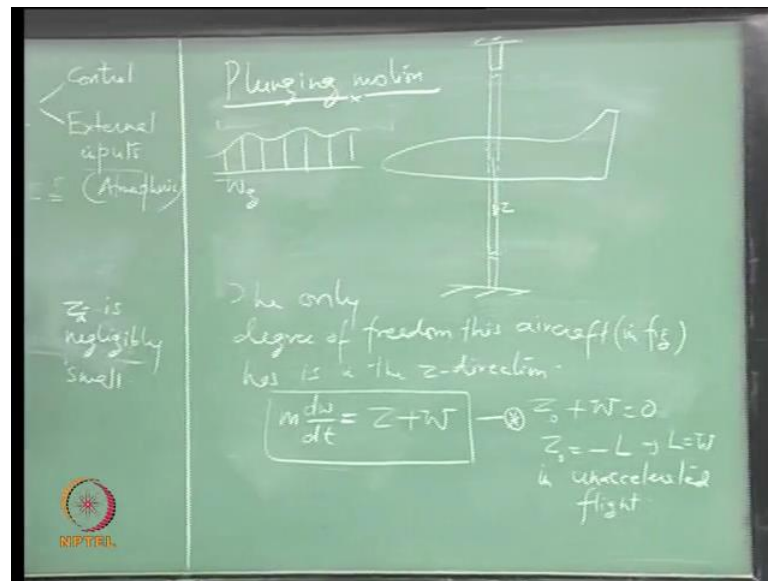 Control
External
inputs
(Atmospheric)
Z is
negligibly
small
Plunging motion
Wg
z
The only
degree of freedom this aircraft (in fig)
has is in the z-direction.
m dw/dt = Z + W — ⊛
Z₀ + W = 0
Z₀ = -L → L = W
in unaccelerated
flight
NPTEL